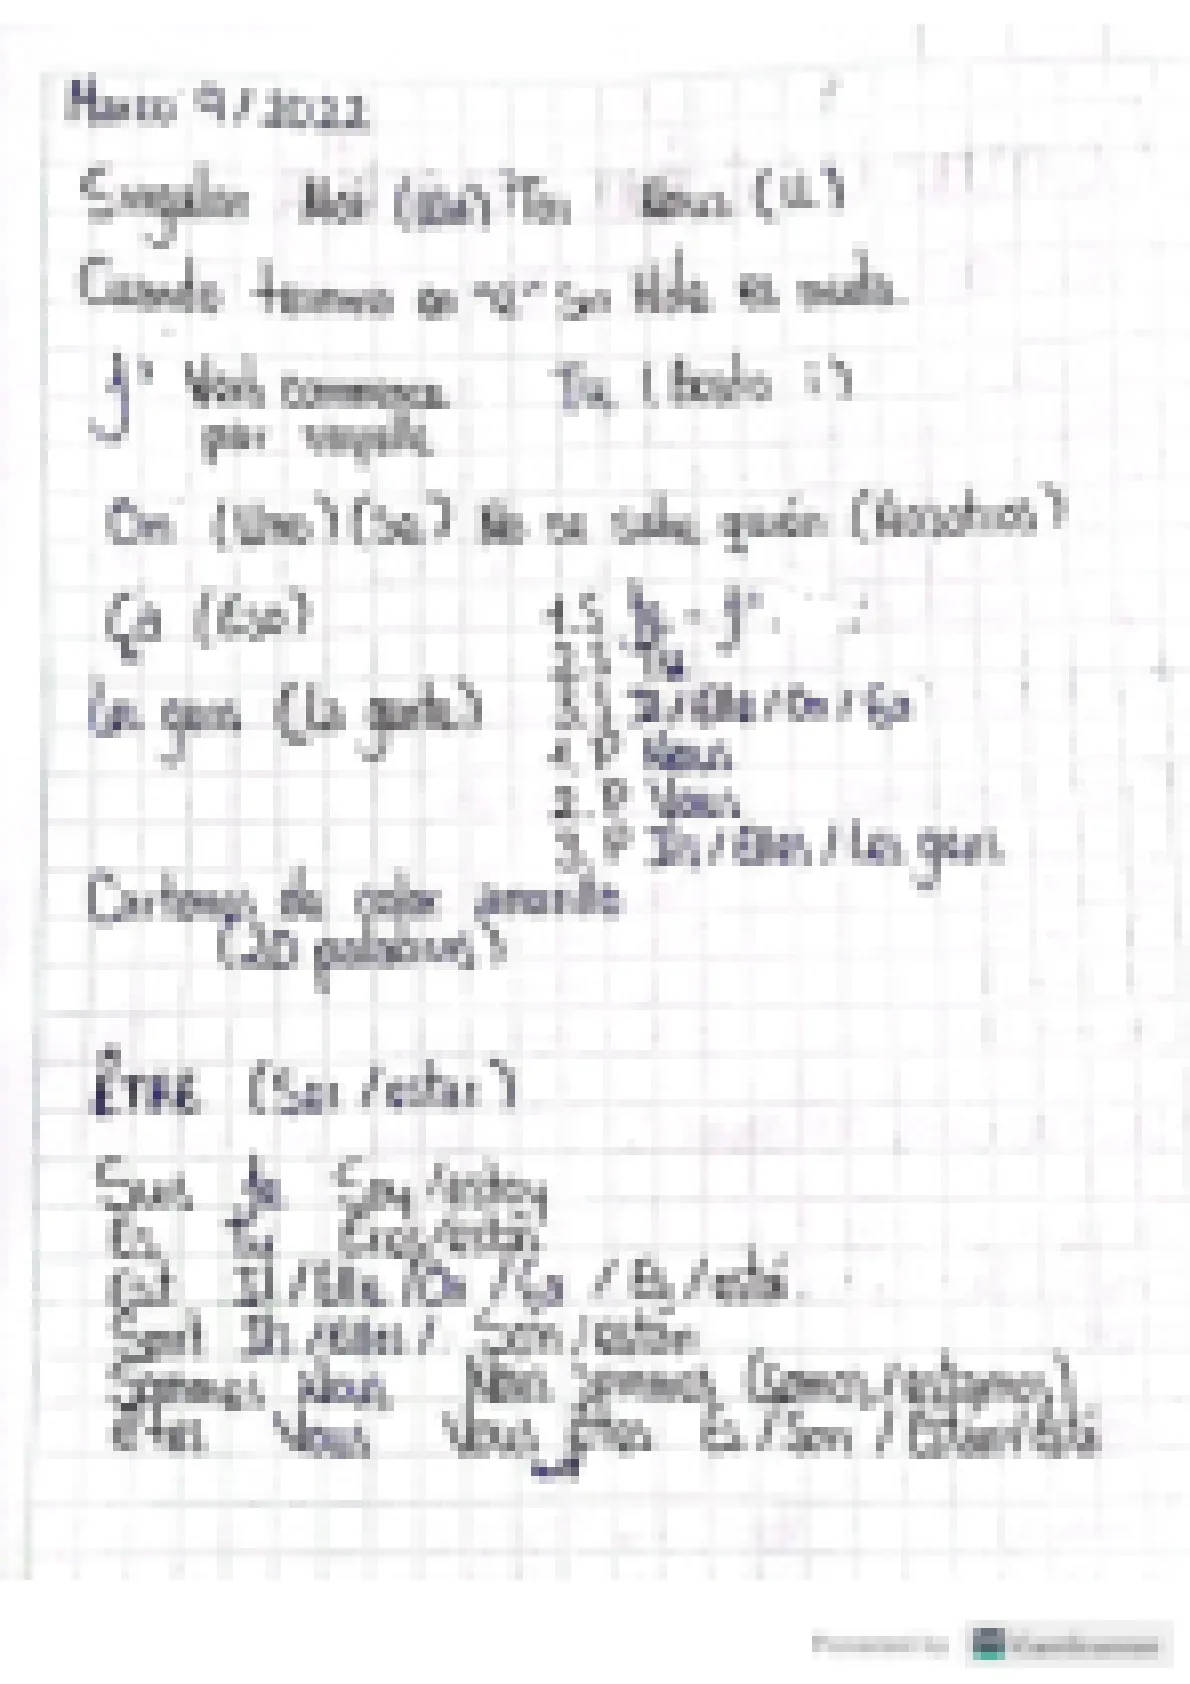 Marzo 9/2022
Singular Moi Toi Nous (U)
Cuando termina en "e" sin tilde es muda.
J' Verb commence Tu (Beato :)
par voyelle
On (Uno) (Se) No se sabe quién (Nosotros)
Ça (Eso)
Les gens (La gente)
1.S Je - J'
2.S Tu
3.S Il/Elle/On/Ça
1.P Nous
2.P Vous
3.P Ils/Elles/Les gens
Cartones de color amarillo
(20 palabras)
ÊTRE (Ser/estar)
Suis Je Soy/estoy
Es Tu Eres/estás
Est Il/Elle/On/Ça / Es/está
Sont Ils/Elles/ Son/están
Sommes Nous Nous sommes (Somos/estamos)
êtes Vous Vous êtes Es/Son/Están/Está
Powered by CamScanner